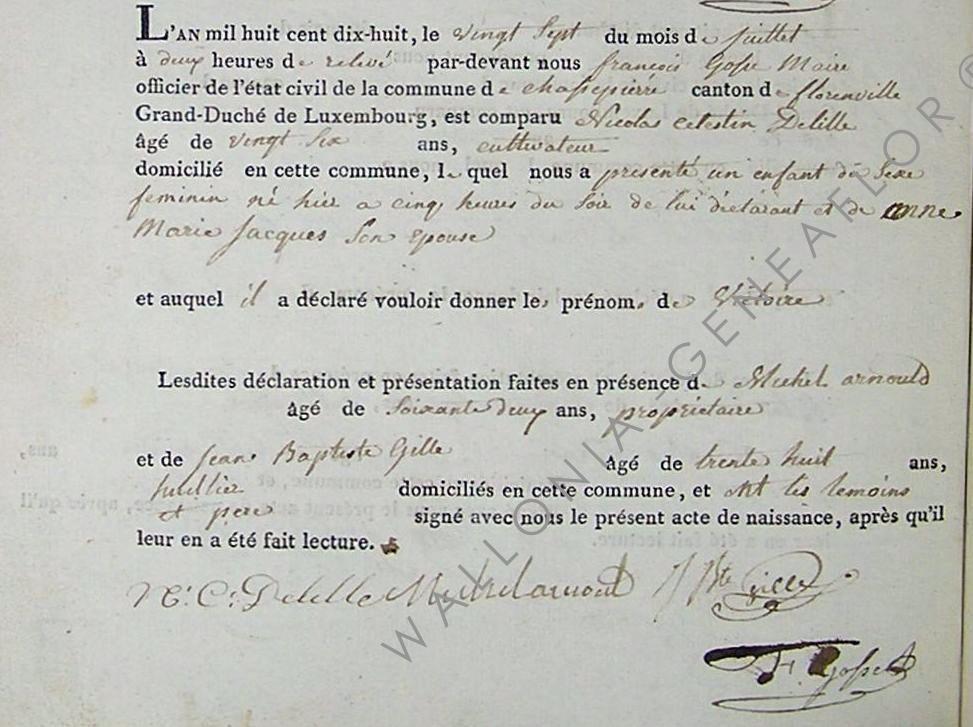 L'AN mil huit cent dix-huit, le vingt Sept du mois de juillet
à deux heures de relevé par-devant nous françois Gosse Maire
officier de l'état civil de la commune de chassepierre canton de florenville
Grand-Duché de Luxembourg, est comparu Nicolas celestin Delille
âgé de vingt Six ans, cultivateur
domicilié en cette commune, le quel nous a présenté un enfant du Sexe
feminin né hier a cinq heures du Soir de lui déclarant et de anne
Marie Jacques Son epouse
et auquel il a déclaré vouloir donner les prénoms de Victoire
Lesdites déclaration et présentation faites en présence de Michel arnould
âgé de Soixante deux ans, proprietaire
et de jean Baptiste Gille âgé de trente huit ans,
domiciliés en cette commune, et ont les temoins
et pere signé avec nous le présent acte de naissance, après qu'il
leur en a été fait lecture.
N: C: Delille Michel arnould J Bte Gille
F. Gosse
WALLONIA-GENEAFLOR ©